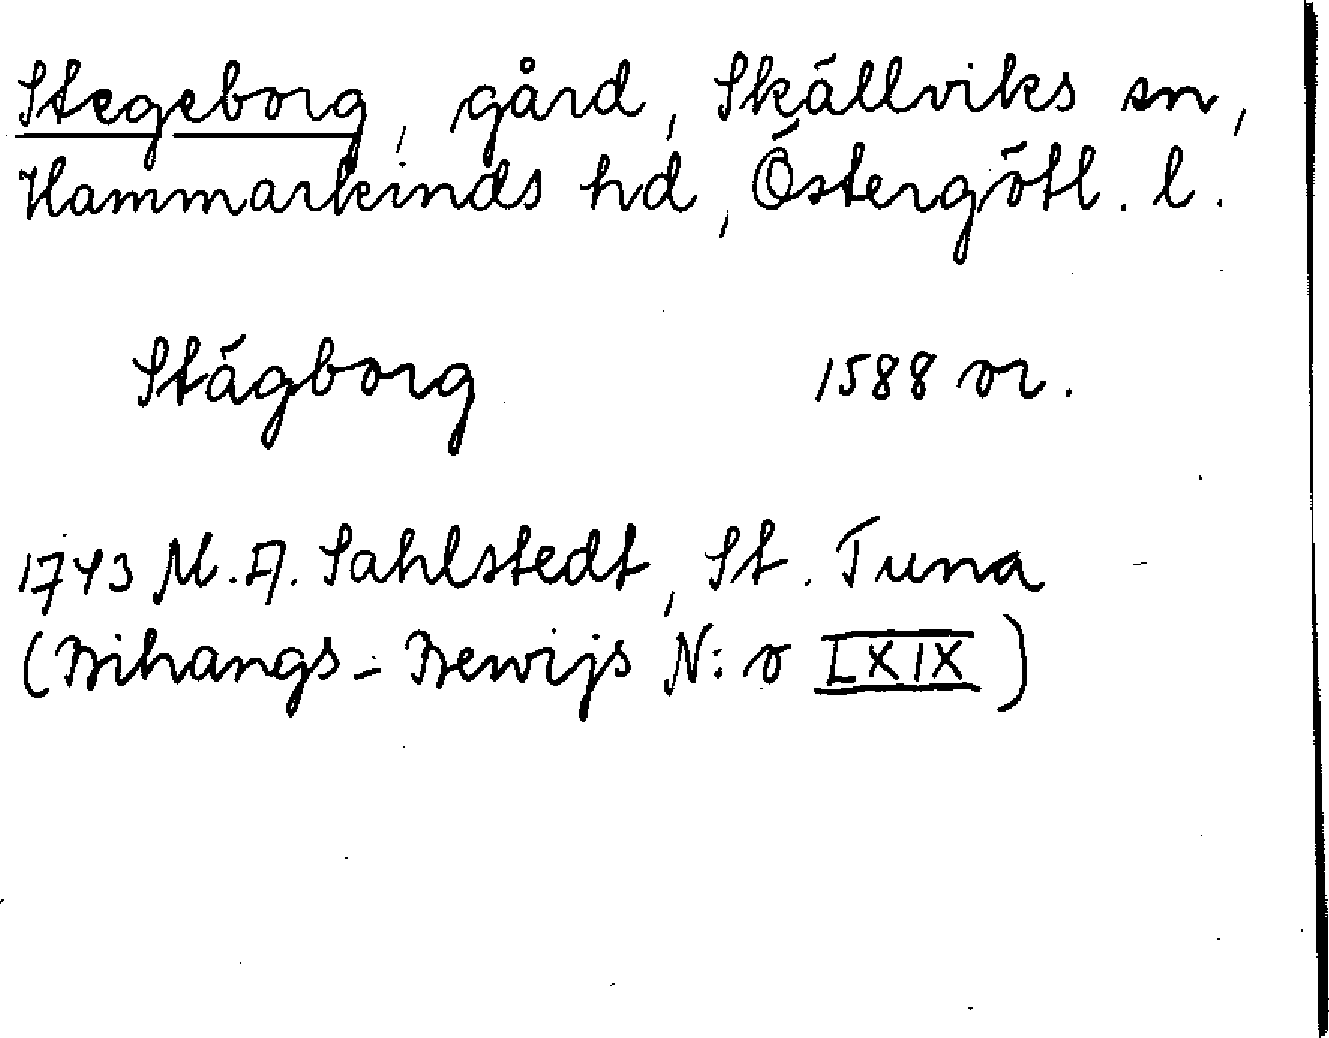 Stegeborg, gård, Skällviks sn,
Hammarkinds hd, Östergötl. l.
Stägborg 1588 or.
1743 M. A. Sahlstedt, St. Tuna
(Bihangs-Bewijs N:o LXIX)